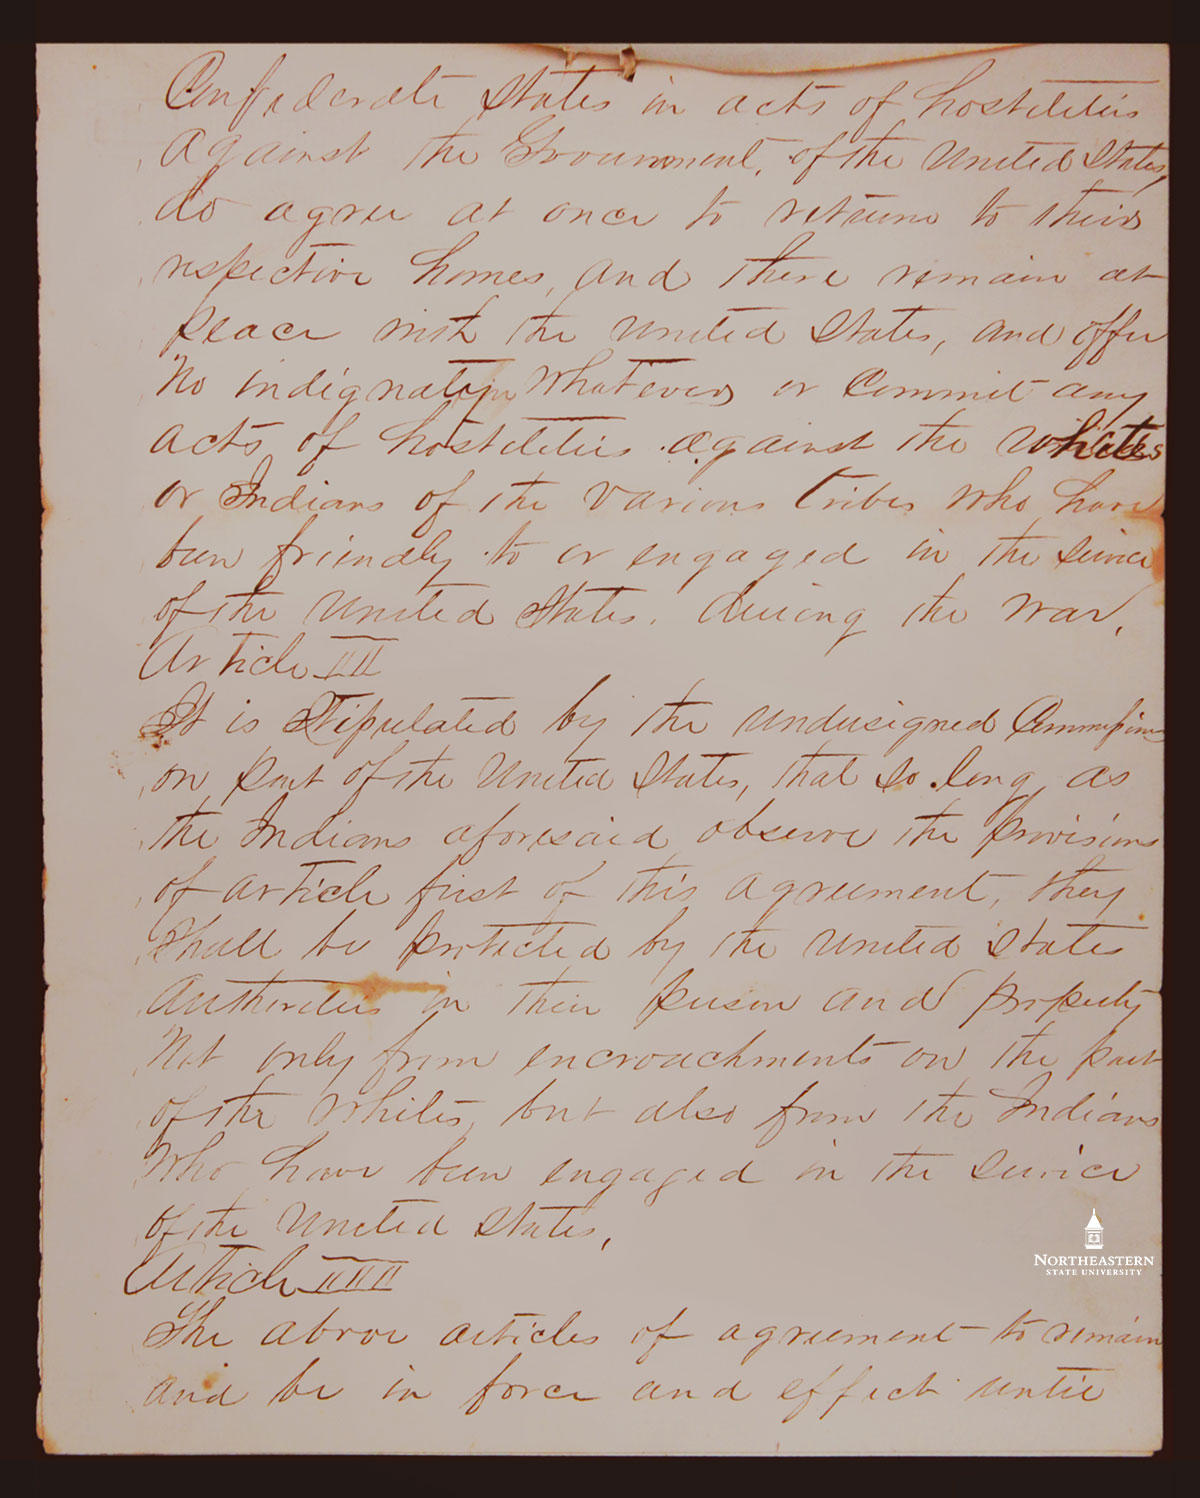 Confederate States in acts of hostilities
against the Government, of the United States,
do agree at once to return to their
respective homes, and there remain at
peace with the United States, and offer
No indignation Whatever or Commit any
acts of hostilities against the whites
or Indians of the various tribes who have
been friendly to or engaged in the service
of the United States. during the war,
Article III
It is Stipulated by the undersigned
on part of the United States, that so long as
the Indians aforesaid observe the provisions
of article first of this agreement, they
shall be protected by the United States
Authorities in their person and property
Not only from encroachments on the part
of the Whites, but also from the Indians
Who have been engaged in the service
of the United States,
Article IIII
The above articles of agreement to remain
and be in force and effect until
NORTHEASTERN
STATE UNIVERSITY